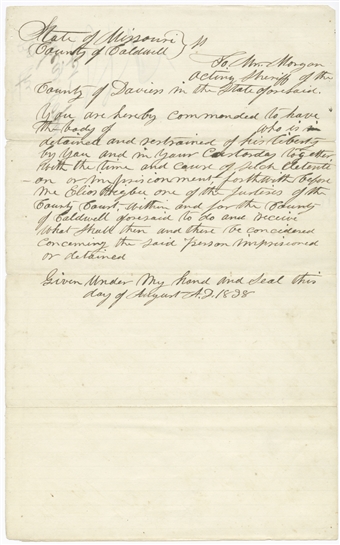 State of Missouri } ss
County of Caldwell }
To Wm Morgan
acting Sheriff of the
County of Daviess in the State foresaid.
You are hereby commanded to have
the body of who is
detained and restrained of his liberty
by you and in your Custoday
with the time and cause of such
on or imprisonment, forthwith before
me Elias Higbee one of the Justices of the
County Court, within and for the County
of Caldwell foresaid to do and receive
what shall then and there be concidered
concerning the said person imprisoned
or detained
Given under my hand and seal this
day of August A.D. 1838